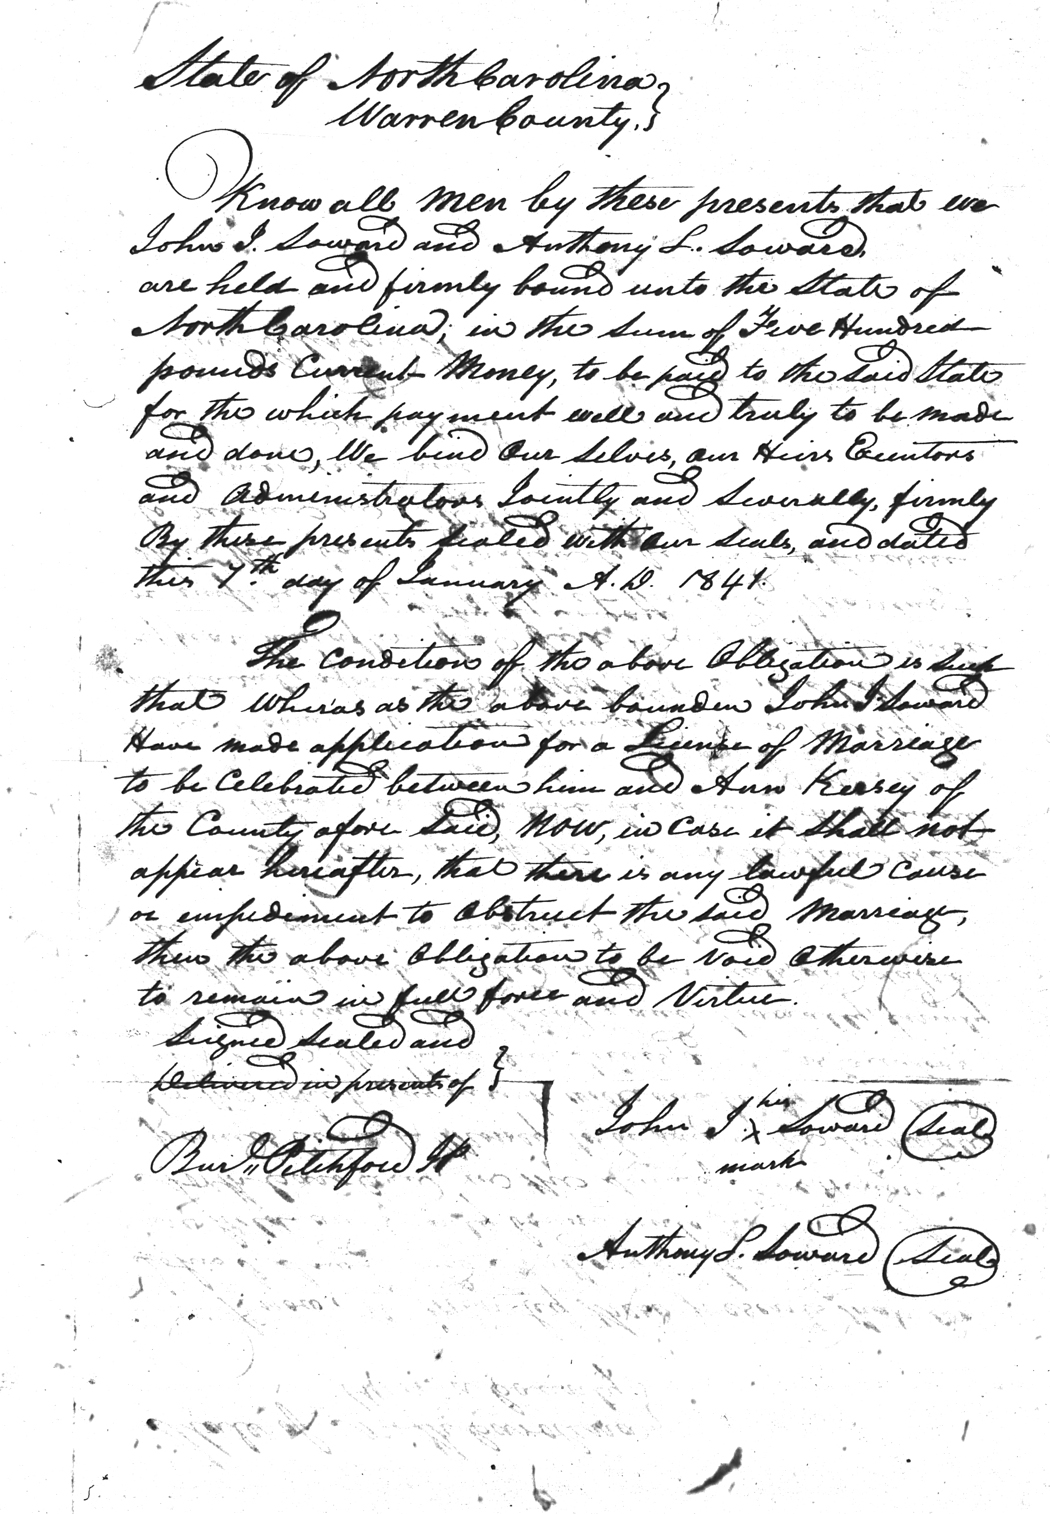 State of North Carolina }
Warren County. }
Know all men by these presents that we
John J. Soward and Anthony L. Soward,
are held and firmly bound unto the State of
North Carolina, in the sum of Five Hundred
pounds Current Money, to be paid to the said State
for the which payment well and truly to be made
and done, We bind Our selves, our Heirs Exeutors
and Administrators Jointly and severally, firmly
By these presents sealed with our seals, and dated
this 7th day of January A.D. 1841.
The condition of the above Obligation is such
that wheras as the above bounden John J Soward
Have made application for a License of Marriage
to be Celebrated between him and Ann Kersey of
the County afore said, Now, in case it shall not
appear hereafter, that there is any lawful cause
or impediment to obstruct the said Marriage,
then the above Obligation to be void Otherwise
to remain in full force and Virtue.
Signed Sealed and
Delivered in presents of }
John J. his x mark Soward (Seal)
Bur.d Pitchford
Anthony L. Soward (Seal)